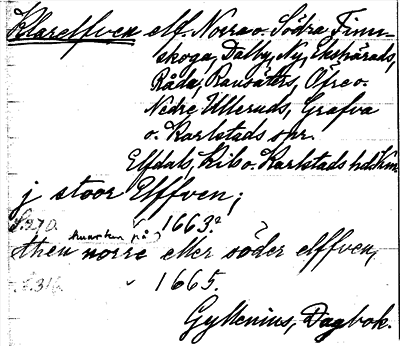 Klarelfven elf. Norra o. Södra Finn-
skoga, Dalby, Ny, Ekshärads,
Råda, Ransäters, Öfre o.
Nedre Ulleruds, Grafva
o. Karlstads snr.
Elfdals, Kils o. Karlstads hd. Km.
j stoor Elffven;
S. 270. 1663.
hwarken på
then norre eller söder elffven,
S. 316. " 1665.
Gyllenius, Dagbok.